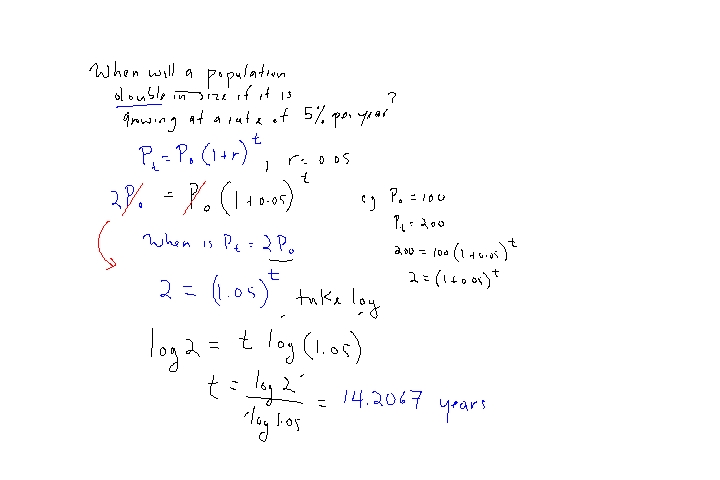 When will a population
double in size if it is
growing at a rate of 5% per year?
P_t = P_0 (1+r)^t, r = 0.05
2P_0 = P_0 (1+0.05)^t
When is P_t = 2P_0
2 = (1.05)^t take log
log 2 = t log (1.05)
t = log 2 / log 1.05 = 14.2067 years
eg P_0 = 100
P_t = 200
200 = 100 (1+0.05)^t
2 = (1+0.05)^t